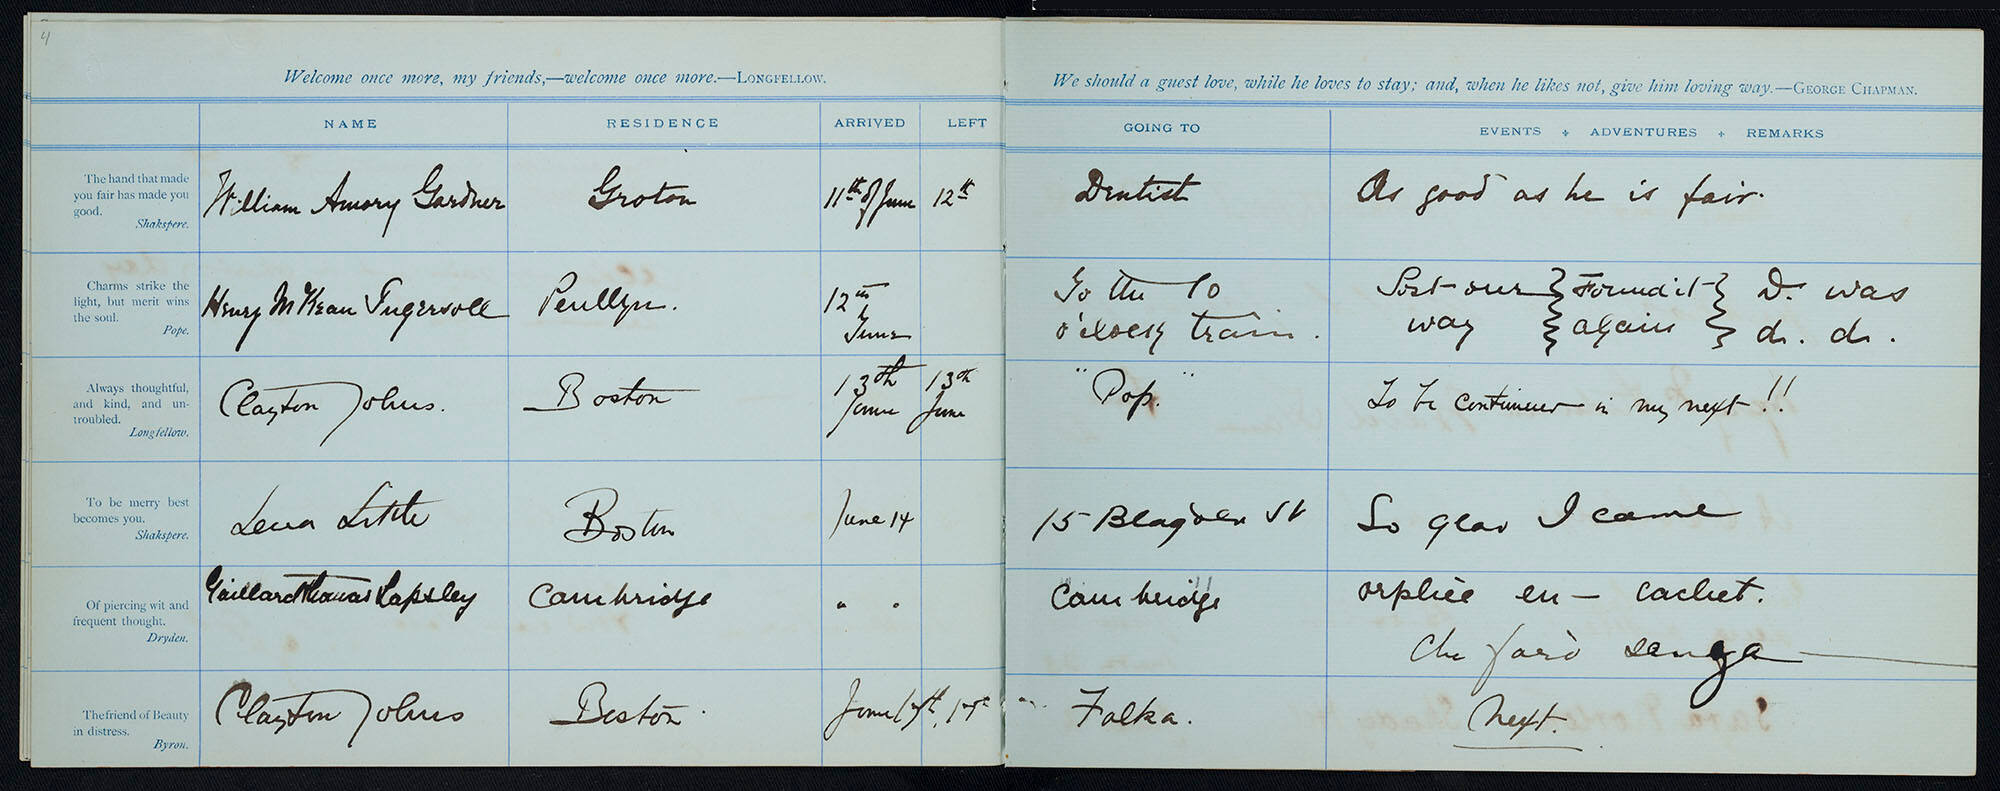 4
Welcome once more, my friends,—welcome once more.—LONGFELLOW.
We should a guest love, while he loves to stay; and, when he likes not, give him loving way.—GEORGE CHAPMAN.
NAME RESIDENCE ARRIVED LEFT GOING TO EVENTS + ADVENTURES + REMARKS
The hand that made
you fair has made you
good.
Shakspere.
William Amory Gardner Groton 11th of June 12th Dentist As good as he is fair.
Charms strike the
light, but merit wins
the soul.
Pope.
Henry McKean Ingersoll Penllyn. 12th
June
To the 10
o'clock train.
Lost our } Found it } D. was
way } again } d. d.
Always thoughtful,
and kind, and un-
troubled.
Longfellow.
Clayton Johns. Boston 13th
June
13th
June
"Pop." To be continued in my next!!
To be merry best
becomes you.
Shakspere.
Lena Little Boston June 14 15 Blagden St So glad I came
Of piercing wit and
frequent thought.
Dryden.
Gaillard Thomas Lapsley Cambridge " " Cambridge orphée en — cachet.
Che farò senza —
The friend of Beauty
in distress.
Byron.
Clayton Johns Boston. June 17th, 17th Falka. Next.